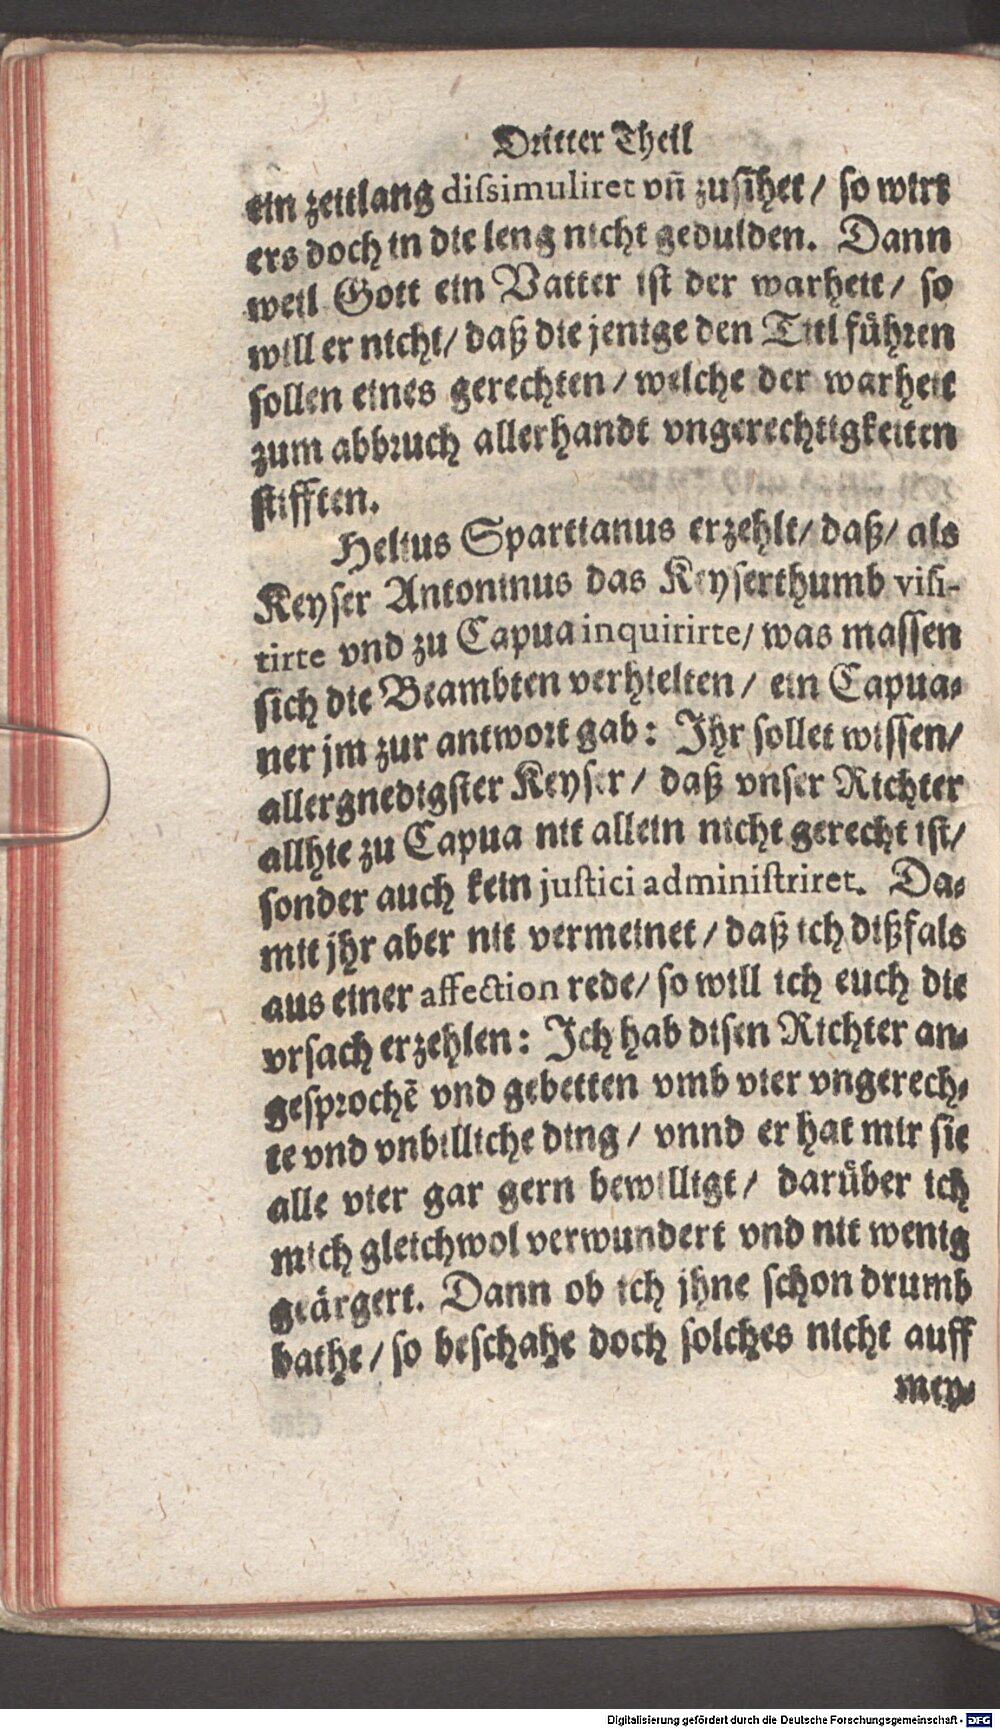 Dritter Theil
ein zeitlang diſsimuliret vn̄ zuſihet / ſo wirt
ers doch in die leng nicht gedulden. Dann
weil Gott ein Vatter iſt der warheit / ſo
will er nicht / daß die jenige den Titl fuͤhren
ſollen eines gerechten / welche der warheit
zum abbruch allerhandt vngerechtigkeiten
ſtifften.
Helius Spartianus erzehlt / daß / als
Keyſer Antoninus das Keyſerthumb viſi-
tirte vnd zu Capua inquirirte / was maſſen
ſich die Beambten verhielten / ein Capua⸗
ner jm zur antwort gab: Ihr ſollet wiſſen /
allergnedigſter Keyſer / daß vnſer Richter
allhie zu Capua nit allein nicht gerecht iſt /
ſonder auch kein juſtici adminiſtriret. Da⸗
mit jhr aber nit vermeinet / daß ich dißfals
aus einer affection rede / ſo will ich euch die
vrſach erzehlen: Ich hab diſen Richter an⸗
geſprochē vnd gebetten vmb vier vngerech⸗
te vnd vnbilliche ding / vnnd er hat mir ſie
alle vier gar gern bewilligt / daruͤber ich
mich gleichwol verwundert vnd nit wenig
geärgert. Dann ob ich jhne ſchon drumb
bathe / ſo beſchahe doch ſolches nicht auff
mey⸗
Digitalisierung gefördert durch die Deutsche Forschungsgemeinschaft - DFG